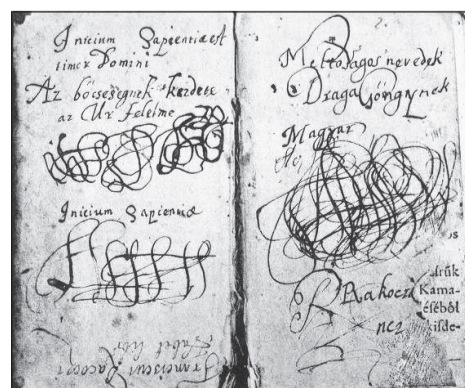 Inicium Sapientiæ est
timor Domini
Az bőcsesegnek kezdete
az Ur felelme
Inicium Sapientiæ
Franciscus Racoczi
Meltosagos nevedek
Draga Göngynek
Magyar
Rakoczi
ncz
rűk
Kama-
éséből
kisde-